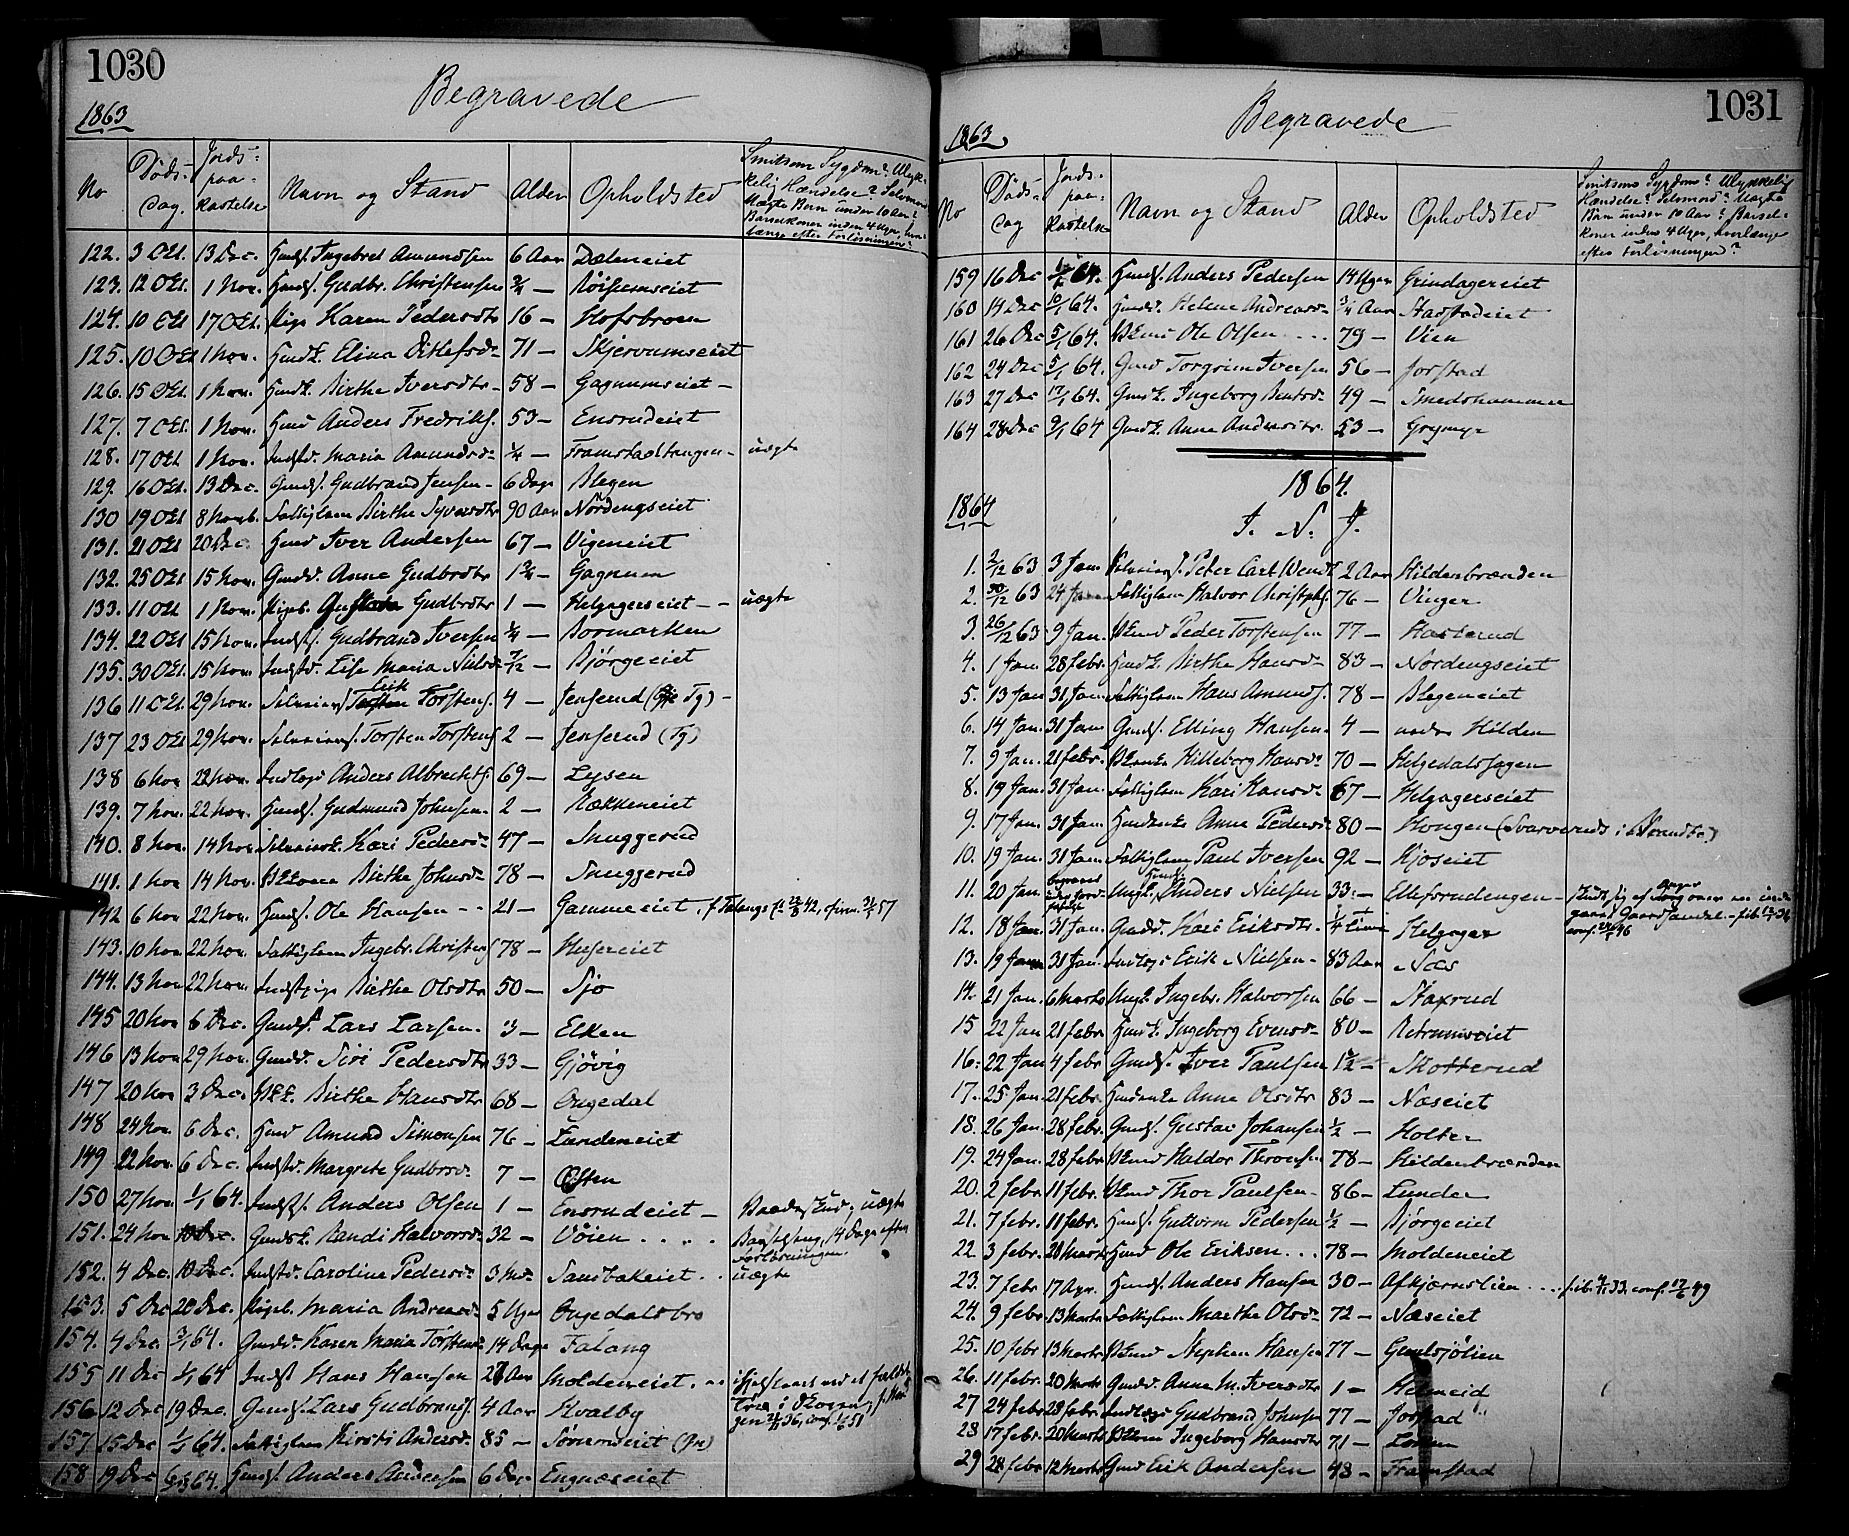 1030
Begravede
1863
No Døds-dag. Jords-paa-kastelse Navn og Stand Alder Opholdsted Smitsom Sygdom? Ulyk-kelig Hændelse? Selvmord? Uægte Barn under 10 Aar? Barselkoner inden 4 Uger, hvor længe efter Forløsningen?
122. 3 Oct. 13 Dec. Husms. Ingebret Amundsen 6 Aar Dæleneiet
123. 12 Oct. 1 Nov. Husms. Gudbr. Christensen ¾ — Røisumseiet
124. 10 Oct 17 Oct. Pige Karen Pedersdtr 16 — Hofsbroen
125. 10 Oct 1 Nov. Husmk. Elina Ditlefsd. 71 — Skjervumseiet
126. 15 Oct. 1 Nov. Husmk. Birthe Iversdtr. 58 — Gagnumseiet —
127. 7 Oct. 1 Nov. Husmd Anders Fredriks. 53 — Ensrudeiet
128. 17 Oct 1 Nov. Indstd. Maria Amundsd. ¼ — Framstadtangen — uægte
129. 16 Oct. 13 Dec. Gmds. Gudbrand Jensen — 6 Dage Blegen
130 19 Oct 8 Novb. Fattiglem Birthe Syversdtr 90 Aar Nordengseiet
131. 21 Oct 20 Dec. Husmd Iver Andersen 67 — Vigeneiet
132. 25 Oct 15 Nov. Gmdd. Anne Gudbrdtr 1¾ — Gagnum
133. 11 Oct 1 Nov. Pigeb. Gudbrdtr 1 — Helgagerseiet — — uægte
134. 22 Oct 15 Nov. Indsts. Gudbrand Iversen ¼ — Dormarken
135. 30 Oct. 15 Nov. Indstd. Lise Maria Nielsd. 7/12 — Bjørgeeiet
136 11 Oct. 29 Nov. Selveiers. Erik Torstens. 4 — Jenserud (Tg) —
137 23 Oct 29 Nov. Selveiers. Torsten Torstens. 2 — Jenserud (Tg)
138 6 Nov 22 Nov. Indlagt Anders Albrechts. 69 — Lysen
139. 7 Nov. 22 Nov. Husms. Gudmund Johnsen. 2 — Rækkeneiet
140. 8 Nov. 14 Nov. Selveierk. Kari Pedersd. 47 — Snuggerud
141. 1 Nov 14 Nov. Birthe Johnsd. 78 — Snuggerud
142 6 Nov 22 Nov. Husms. Ole Hansen — — 21 — Gammeeiet, f. Falangs 42, confirm. 57
143. 10 Nov. 22 Nov. Fattiglem Ingebr. Christens 78 — Husereiet
144. 13 Nov 22 Nov. Indstpige Birthe Olsdtr 50 — Sjo
145 20 Nov 6 Dec. Gmds. Lars Larsen. 3 — Elken
146 13 Nov 29 Nov. Gmdd. Siri Pedersdtr 33 — Gjøvig
147 20 Nov 3 Dec. Birthe Hansdtr 68 — Ongedal
148 24 Nov 6 Dec. Husmd Amund Simonsen 76 — Lundeneiet
149 22 Nov. 6 Dec. Indstd. Margrete Gudbrsd. 7 — Østen
150 27 Nov. 1/1 64. Indsts. Anders Olsen 1 — Ensrudeiet —
151. 24 Nov Gmdsk. Randi Halvorsd. 32 — Vøien . . . . Barselseng, 14 Dage efter Forløsningen.
152. 4 Dec. Indstd. Caroline Pedersd. 3 Md. Sandbakeiet . . uægte
153. 5 Dec 20 Dec. Pigeb. Maria Andreasd. 5 Uger Ongedalsbro
154. 4 Dec. 3/1 64. Gmdd. Karen Maria Torstensd. 14 Dage Falang
155 11 Dec 1/1 64 Indst Hans Hansen 27 Aar Moldeneiet . .. ihjelslaaet ved et faldende Træ i Skoven
156 12 Dec 19 Dec. Gmds. Lars Gudbrands. 4 Aar Hvalby
157. 15 Dec 64. Fattiglem Kirsti Andersd. 85 — Sørumeiet
158 19 Dec 64. Husms. Anders Andersen 6 Dage Engnæseiet
1031
Begravede
1863
No Døds-dag Jords-paa-kastelse Navn og Stand Alder Opholdsted Smitsom Sygdom? Ulykkelig Hændelse? Selvmord? Uægte Barn under 10 Aar? Barsel-koner inden 4 Uger, hvorlænge efter Forløsningen?
159 16 Dec 64. Husms. Anders Pedersen 14 Uger Grindagereiet
160 14 Dec 10/1 64. Husmd. Helene Andreasd. ¾ Aar Stadstadeiet
161 26 Dec 5/1 64. Ole Olsen . . . . 79 — Vien
162 24 Dec 5/1 64. Gmd Torgrim Iversen 56 — Jorstad
163 27 Dec 17/1 64. Gmdk. Ingeborg Bentsd. 49 — Smedshammer
164 28 Dec 9/1 64 Gmdk. Anne Andersdtr. 53 — Grymyr
1864.
1864
I. N. J.
1. 2/12 63 3 Jan. Selveiers. Peter Carl Wendt 2 Aar Hildenbrænden
2. 30/12 63 24 Jan Fattiglem Halvor Christophs. 76 — Vinger
3. 26/12 63 9 Jan. Peder Torstensen 77 — Hasterud
4. 1 Jan. 28 Febr. Husmk. Birthe Hansd. 83 — Nordengseiet
5. 13 Jan 31 Jan. Fattiglem Hans Amunds. 78 — Blegeneiet
6. 14 Jan. 31 Jan Gmds. Elling Hansen 4 — nedre Hilden
7. 9 Jan. 21 Febr. Hilleborg Hansd. 70 — Helgedalshagen
8. 19 Jan. 31 Jan. Fattiglem Kari Hansd. 67 — Helgagerseiet
9. 17 Jan. 31 Jan. Husmenke Anne Pedersd. 80 — Hougen (Svarverud i Brandbo)
10. 19 Jan. 31 Jan. Fattiglem Paul Iversen 92 — Kjoseiet
11. 20 Jan. begravet uden Jordpaakastelse Ungk. Anders Nielsen 33 — Ellefsrudengen —
12. 18 Jan. 31 Jan. Gmdd. Kari Eriksdtr. ¼ Time Helgager
13. 19 Jan 31 Jan. Indlagt Erik Nielsen — 83 Aar Næs
14. 21 Jan. 6 Marts Ungk. Ingebr. Halvorsen 66 — Haxrud
15 22 Jan 21 Febr. Husmk. Ingeborg Evensd. 80 — Retrumseiet
16. 22 Jan 4 Febr Gmds. Iver Paulsen 1½ — Skotterud
17. 25 Jan 21 Febr. Husmenke Anne Olsdtr 83 — Næseiet
18. 26 Jan. 28 Febr. Gmds. Gustav Johansen ½ — Holter
19. 24 Jan. 28 Febr. Haldor Thronsen 78 — Hildenbrænden
20. 2 Febr. 11 Febr. Thor Paulsen — 86 — Lunder
21. 7 Febr. 11 Febr. Husms. Guttorm Pedersen ½ — Bjørgeeiet
22 3 Febr. 20 Marts Husmd Ole Eriksen . . . 78 — Moldeneiet
23. 7 Febr. 17 Apr. Husms. Anders Hansen 30 — Askjærnslien . . . f. ib. 33. conf. 49
24. 9 Febr. 13 Marts Fattiglem Marthe Olsd. 72 — Næseiet
25. 10 Febr 13 Marts Stephen Hansen 77 — Gamlsjølien
26. 11 Febr. 20 Marts Gmdd. Anne M. Iversdtr 1 — Helmeid
27 24 Febr. 28 Febr. Indlagt Gudbrand Johnsen 77 — Jorstad
28 17 Febr. 20 Marts Ingeborg Hansdtr 71 — Loum
29 28 Febr. 12 Marts Gmd Erik Andersen 48 — Framstad